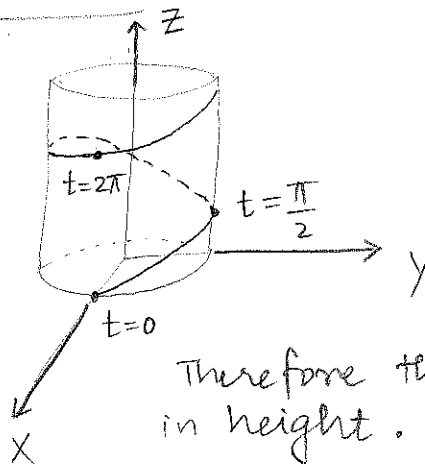 Z
t=2π
t=π/2
Y
t=0
Therefore
in height.
X